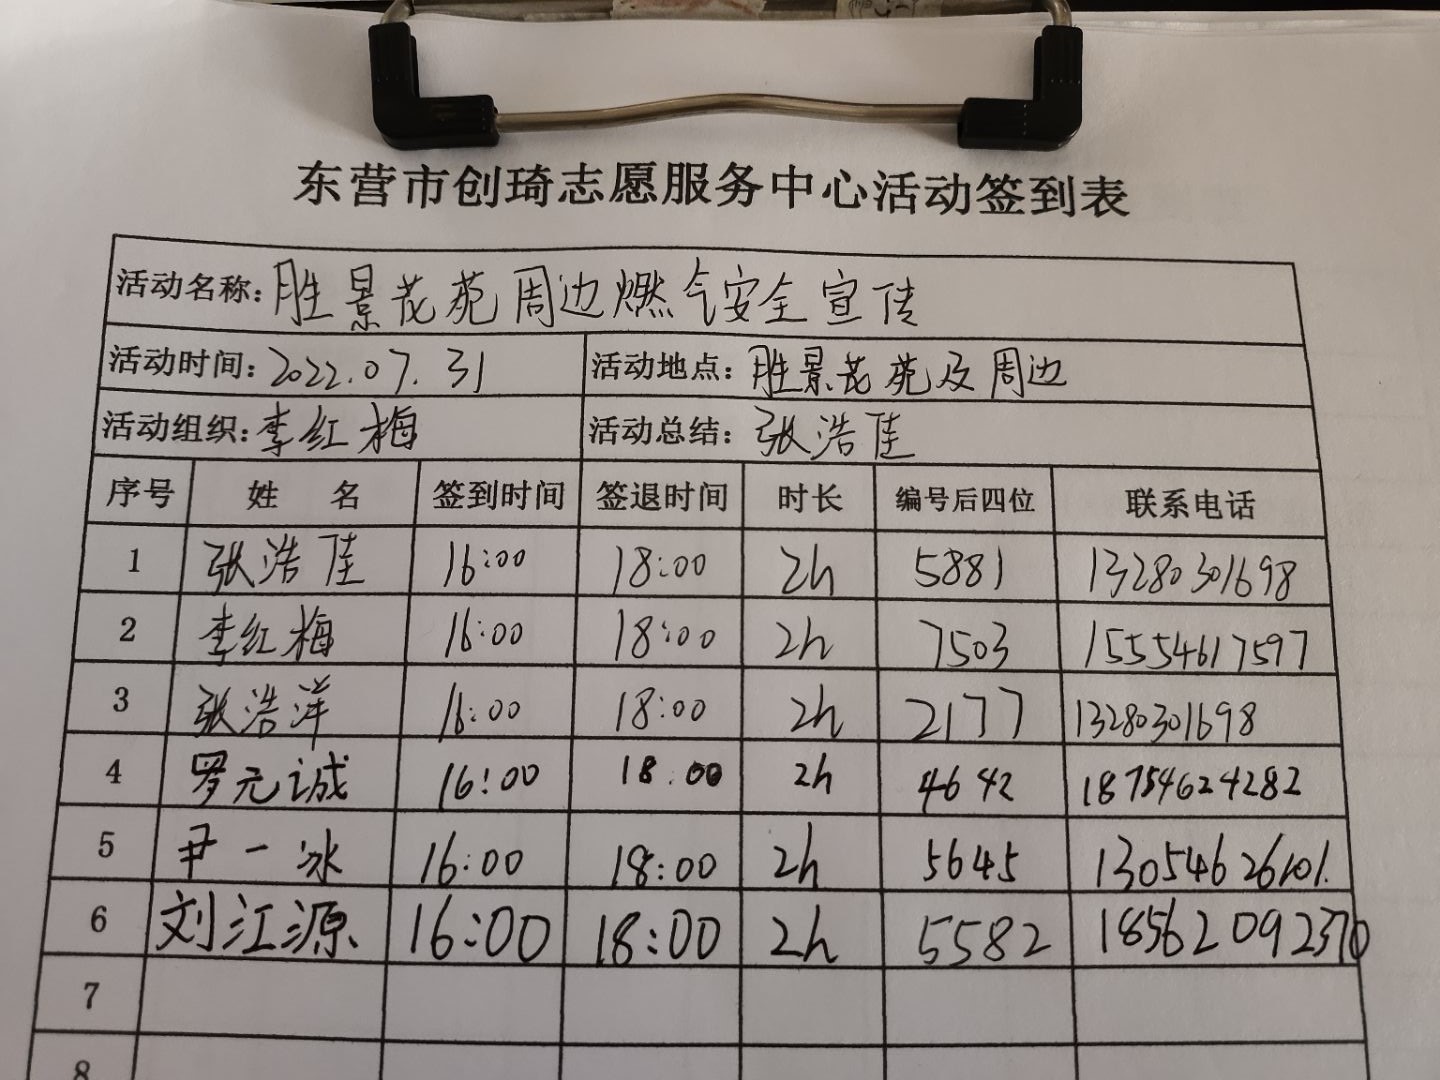 东营市创琦志愿服务中心活动签到表
活动名称: 胜景花苑周边燃气安全宣传
活动时间: 2022.07.31 活动地点: 胜景花苑及周边
活动组织: 李红梅 活动总结: 张浩佳
序号 姓名 签到时间 签退时间 时长 编号后四位 联系电话
1 张浩佳 16:00 18:00 2h 5881 13280301698
2 李红梅 16:00 18:00 2h 7503 15554617597
3 张浩洋 16:00 18:00 2h 2177 13280301698
4 罗元诚 16:00 18:00 2h 4642 18754624282
5 尹一冰 16:00 18:00 2h 5645 13054626101.
6 刘江源 16:00 18:00 2h 5582 18562092370
7
8